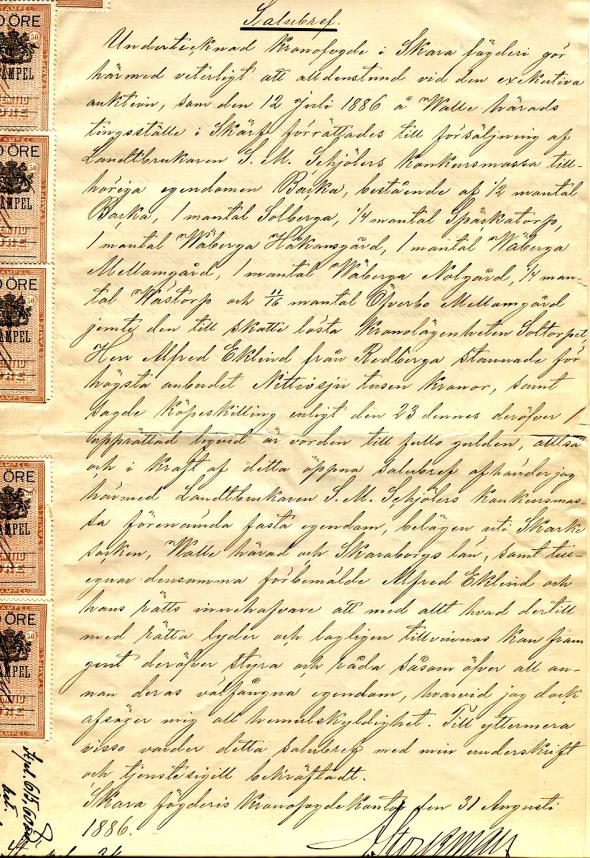 Salubref.
Undertecknad Kronofogde i Skara fögderi gör
härmed veterligt att alldenstund vid den exekutiva
auktion, som den 12 Juli 1886 å Walle härads
tingsställe i Skärf förrättades till försäljning af
Landtbrukaren S. M. Schjölers konkursmassa till-
höriga egendomen Backa, bestående af 1/2 mantal
Backa, 1 mantal Solberga, 1/4 mantal Spärkatorp,
1 mantal Wäberga Håkansgård, 1 mantal Wäberga
Mellamgård, 1 mantal Wäberga Nolgård, 1/4 man-
tal Wästorp och 11/16 mantal Öfverbo Mellamgård
jemte den till skatte lösta Kronolägenheten Soltorpet,
Herr Alfred Eklind från Redberga stannade för
högsta anbudet Nittiosju tusen kronor, samt
sagde köpeskilling enligt den 23 dennes deröfver
upprättad liqvid är vorden till fullo gulden, alltså
och i kraft af detta öppna salubref afhänder jag
härmed Landtbrukaren S. M. Schjölers konkursmas-
sa förenämda fasta egendom, belägen uti Skarke
socken, Walle härad och Skaraborgs län, samt till-
egnar densamma förbemälde Alfred Eklind och
hans rätts innehafvare att med allt hvad dertill
med rätta lyder och lagligen tillvinnas kan fram-
gent deröfver styra och råda såsom öfver all an-
nan deras välfångna egendom, hvarvid jag dock
afsäger mig all hemulskyldighet. Till yttermera
visso varder detta salubref med min underskrift
och tjenstesigill bekräftadt.
Skara fögderis Kronofogdekontor den 31 Augusti
1886.
ÖRE
50
STÄMPEL
ÖRE
50
STÄMPEL
ÖRE
50
STÄMPEL
ÖRE
50
STÄMPEL
ÖRE
50
STÄMPEL